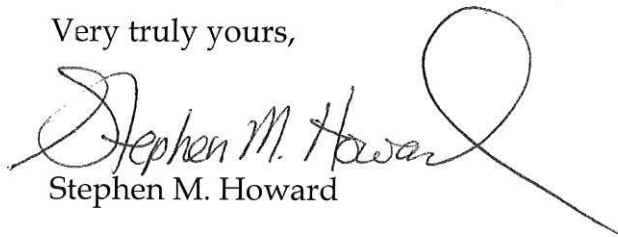 Very truly yours,
Stephen M. Howard
Stephen M. Howard